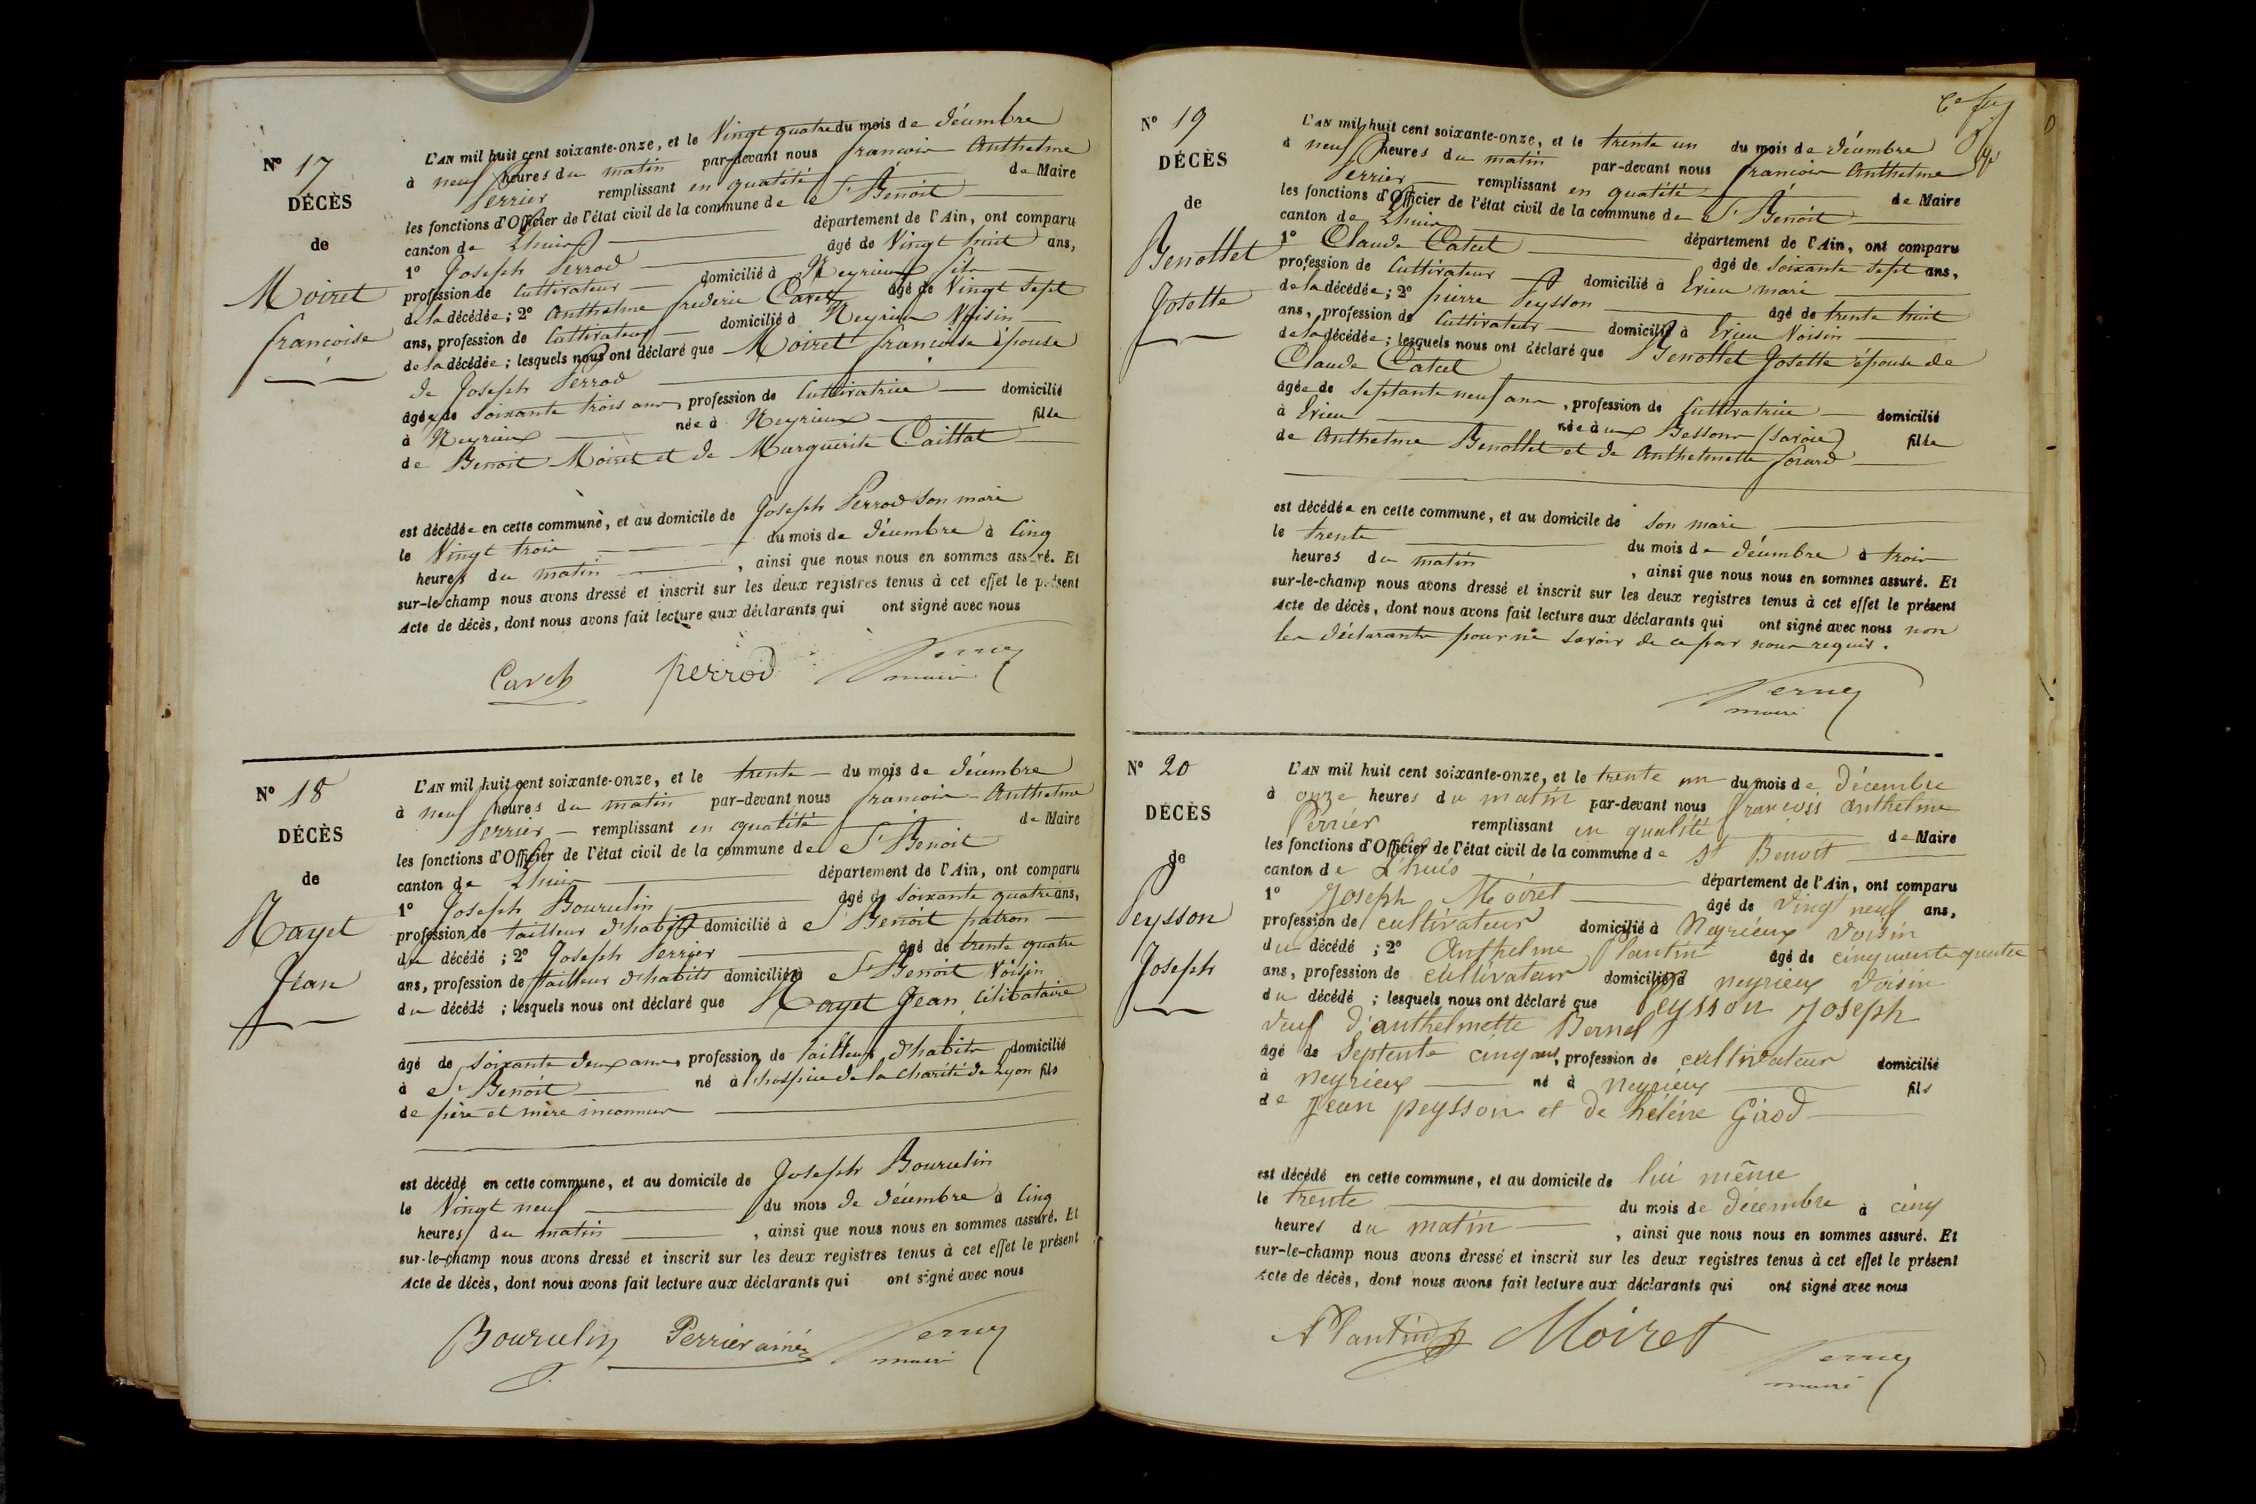 N° 17
DÉCÈS
de
Moiret
françoise
L'AN mil huit cent soixante-onze, et le Vingt quatre du mois de décembre
à neuf heures du matin par-devant nous françois Anthelme
Perrier remplissant en qualité de Maire
les fonctions d'Officier de l'état civil de la commune de St Benoit
canton de Lhuis département de l'Ain, ont comparu
1° Joseph Perrod âgé de Vingt huit ans,
profession de Cultivateur domicilié à Neyrieux fils
de la décédée; 2° Anthelme frederic Cavet âgé de Vingt sept
ans, profession de Cultivateur domicilié à Neyrieu Voisin
de la décédée; lesquels nous ont déclaré que Moiret françoise épouse
de Joseph Perrod
âgée de soixante trois ans, profession de Cultivatrice domicilié
à Neyrieux née à Neyrieux fille
de Benoit Moiret et de Marguerite Caillat
est décédée en cette commune, et au domicile de Joseph Perrod son mari
le Vingt trois du mois de décembre à Cinq
heures du matin, ainsi que nous nous en sommes assuré. Et
sur-le-champ nous avons dressé et inscrit sur les deux registres tenus à cet effet le présent
Acte de décès, dont nous avons fait lecture aux déclarants qui ont signé avec nous
perrod
maire
N° 18
DÉCÈS
de
Mayet
Jean
L'AN mil huit cent soixante-onze, et le trente du mois de décembre
à neuf heures du matin par-devant nous françois Anthelme
Perrier remplissant en qualité de Maire
les fonctions d'Officier de l'état civil de la commune de St Benoit
canton de Lhuis département de l'Ain, ont comparu
1° Joseph Bourulin âgé de soixante quatre ans,
profession de tailleur d'habits domicilié à St Benoit patron
du décédé; 2° Joseph Perrier âgé de trente quatre
ans, profession de tailleur d'habits domicilié à St Benoit Voisin
du décédé; lesquels nous ont déclaré que Mayet Jean célibataire
âgé de soixante deux ans, profession de tailleur d'habits domicilié
à St Benoit né à l'hospice de la Charité de Lyon fils
de père et mère inconnus
est décédé en cette commune, et au domicile de Joseph Bourulin
le Vingt neuf du mois de décembre à Cinq
heures du matin, ainsi que nous nous en sommes assuré. Et
sur-le-champ nous avons dressé et inscrit sur les deux registres tenus à cet effet le présent
Acte de décès, dont nous avons fait lecture aux déclarants qui ont signé avec nous
Bourulin Perrier ainé
maire
N° 19
DÉCÈS
de
Benollet
Josette
L'AN mil huit cent soixante-onze, et le trente un du mois de décembre
à neuf heures du matin par-devant nous françois Anthelme
Perrier remplissant en qualité de Maire
les fonctions d'Officier de l'état civil de la commune de St Benoit
canton de Lhuis département de l'Ain, ont comparu
1° Claude Catcel âgé de soixante sept ans,
profession de Cultivateur domicilié à Evieu mari
de la décédée; 2° pierre Peysson âgé de trente huit
ans, profession de Cultivateur domicilié à Evieu Voisin
de la décédée; lesquels nous ont déclaré que Benollet Josette épouse de
Claude Catcel
âgée de septante neuf ans, profession de Cultivatrice domicilié
à Evieu née aux Bessons (Savoie) fille
de Anthelme Benollet et de Anthelmette
est décédée en cette commune, et au domicile de son mari
le trente du mois de décembre à trois
heures du matin, ainsi que nous nous en sommes assuré. Et
sur-le-champ nous avons dressé et inscrit sur les deux registres tenus à cet effet le présent
Acte de décès, dont nous avons fait lecture aux déclarants qui ont signé avec nous non
les déclarants pour ne savoir de ce par nous requis.
maire
N° 20
DÉCÈS
de
Peysson
Joseph
L'AN mil huit cent soixante-onze, et le trente un du mois de décembre
à onze heures du matin par-devant nous françois anthelme
Perrier remplissant en qualité de Maire
les fonctions d'Officier de l'état civil de la commune de St Benoit
canton de Lhuis département de l'Ain, ont comparu
1° Joseph Moiret âgé de vingt neuf ans,
profession de cultivateur domicilié à Neyrieux voisin
du décédé; 2° Anthelme Plantin âgé de cinquante quatre
ans, profession de cultivateur domicilié à neyrieux voisin
du décédé; lesquels nous ont déclaré que Peysson Joseph
veuf d'anthelmette Bernel
âgé de Septente cinq ans, profession de cultivateur domicilié
à neyrieux né à Neyrieux fils
de Jean peysson et de hélène Girod
est décédé en cette commune, et au domicile de lui même
le trente du mois de décembre à cinq
heures du matin, ainsi que nous nous en sommes assuré. Et
sur-le-champ nous avons dressé et inscrit sur les deux registres tenus à cet effet le présent
Acte de décès, dont nous avons fait lecture aux déclarants qui ont signé avec nous
APlantin Moiret
maire